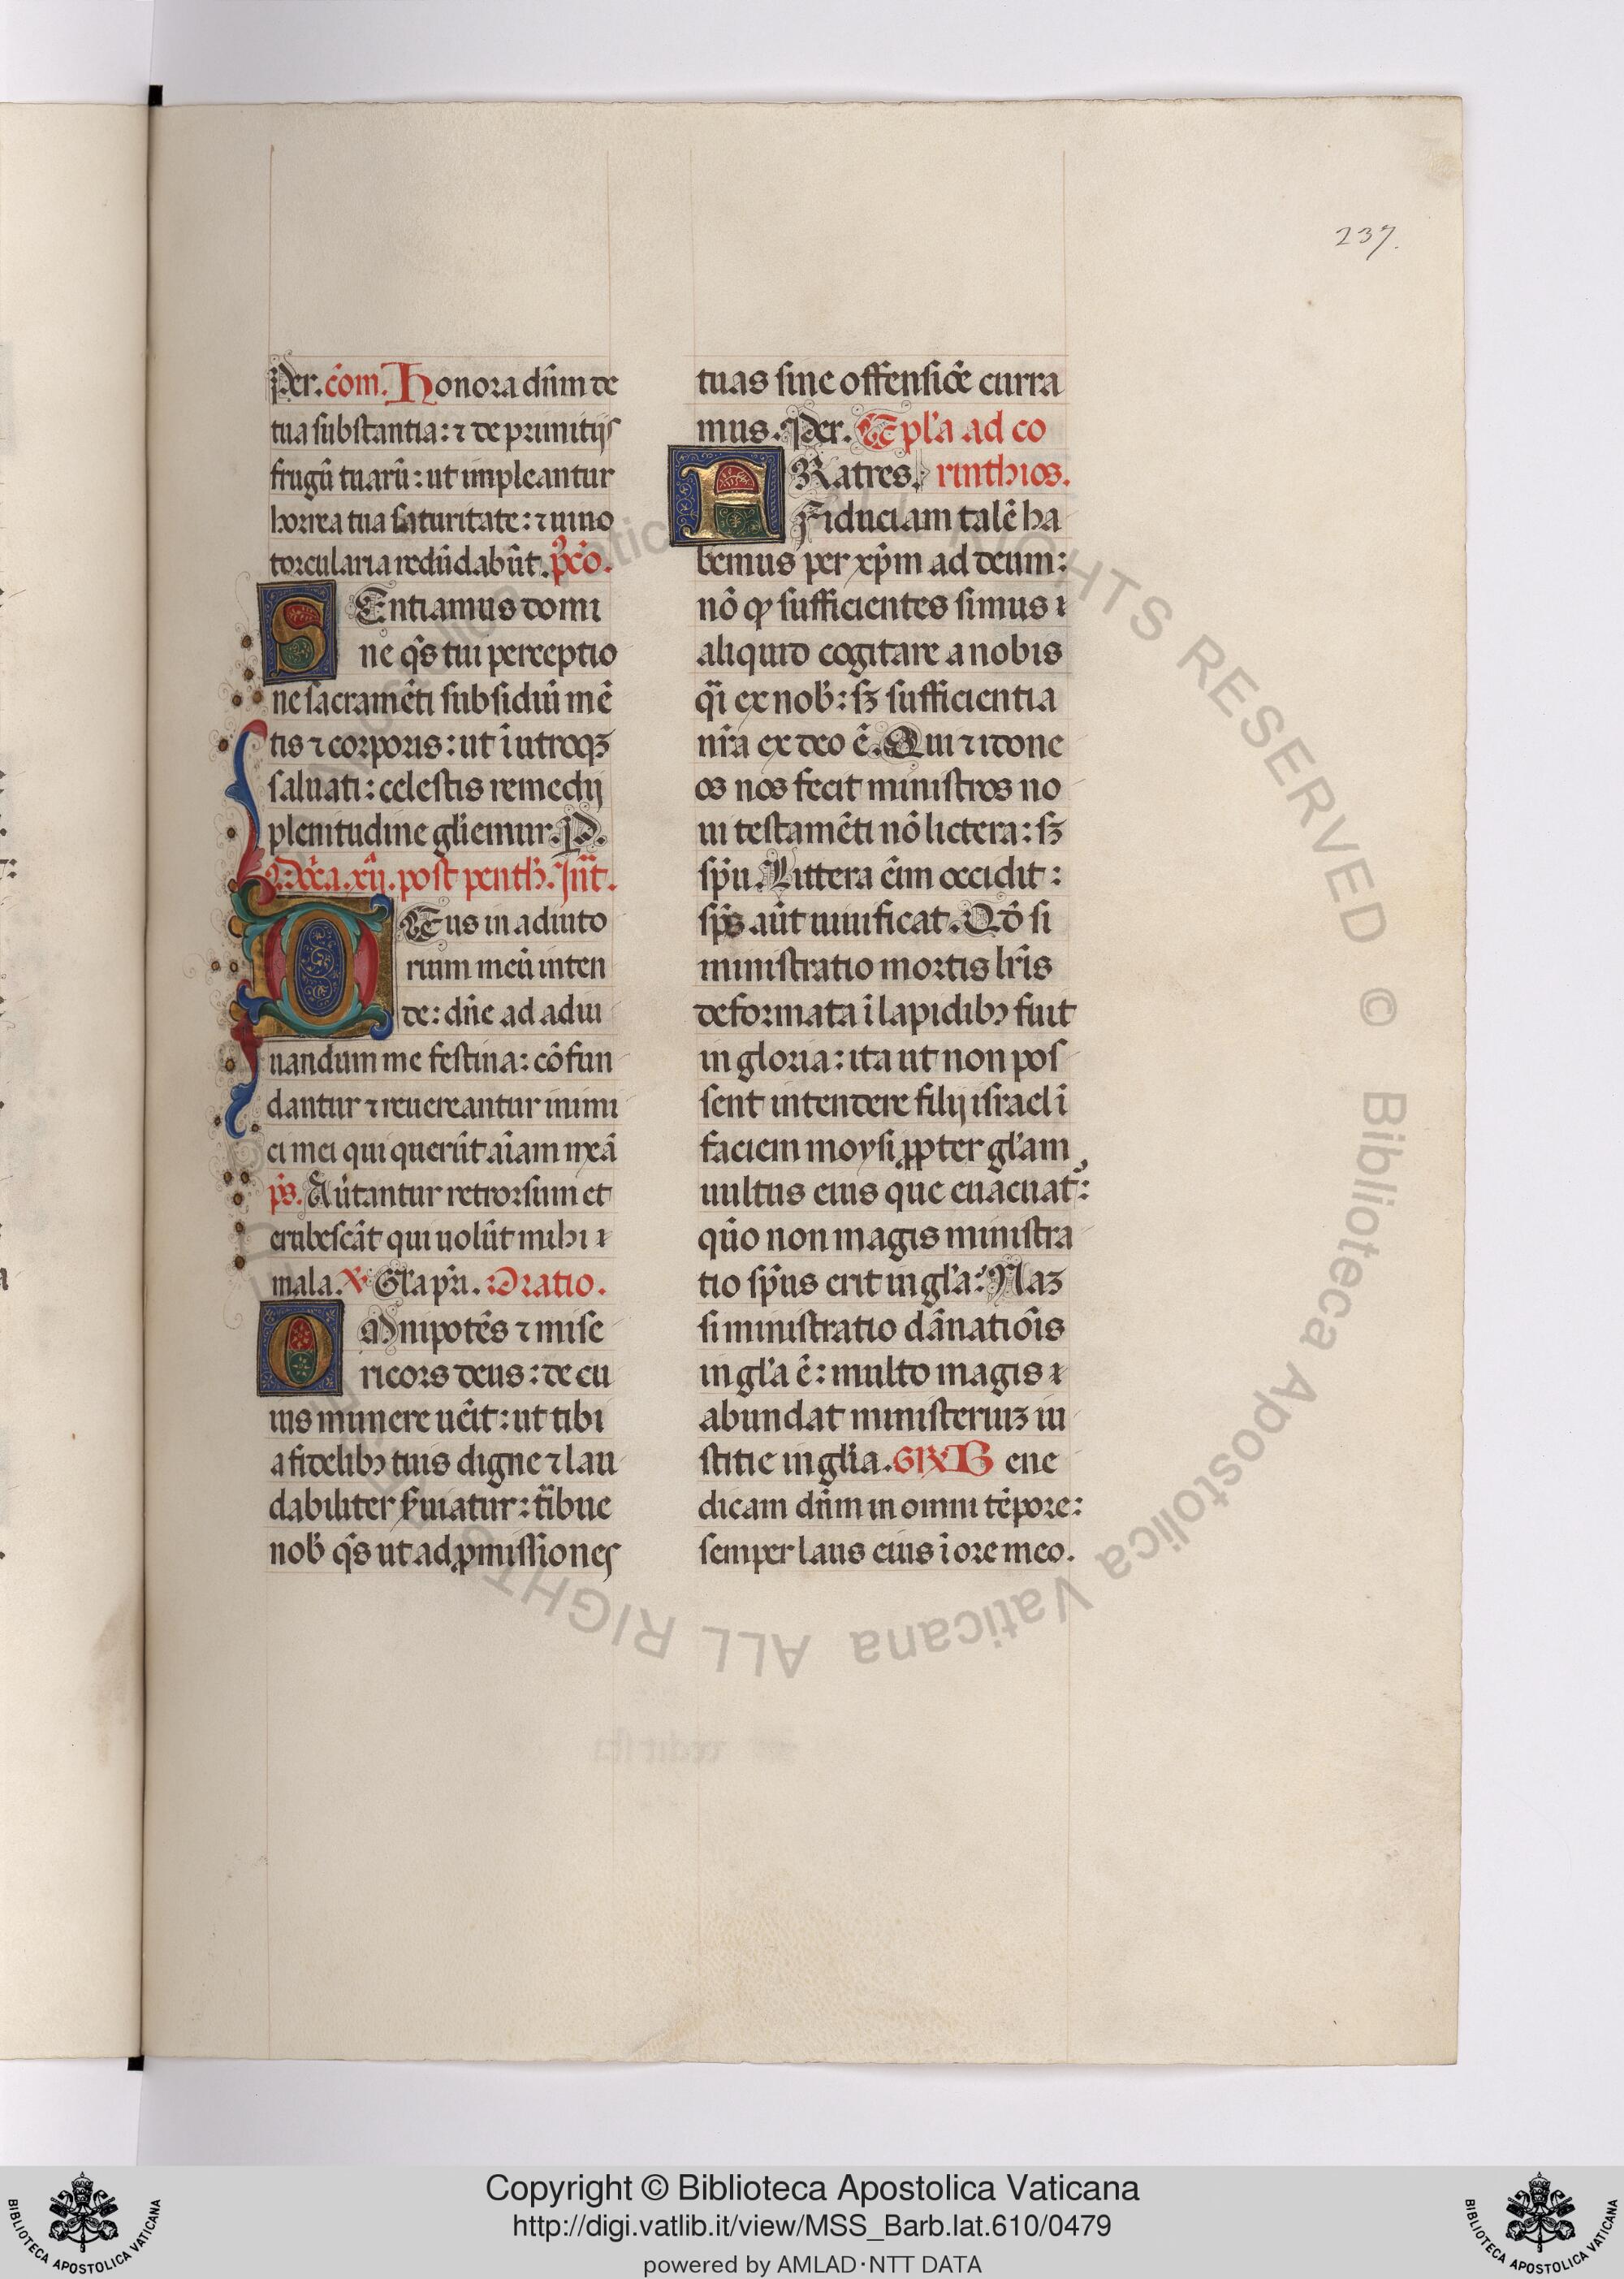 237.
Per. cõm. Honora dñm de
tua substantia: ⁊ de primitijs
frugũ tuarũ: ut impleantur
horrea tua saturitate: ⁊ uino
torcularia redũdabũt. p̃xõ.
SEntiamus domi
ne q̃s tui perceptio
ne sacramẽti subsidiũ mẽ
tis ⁊ corporis: ut ĩ utroqꝫ
saluati: celestis remedij
plenitudine gl̃iemur. P.
Dõca. xij. post penth̃. Int̃.
DEus in adiuto
rium meũ inten
de: dñe ad adiu
uandum me festina: cõfun
dantur ⁊ reuereantur inimi
ci mei qui querũt aĩam meã
p̃s. Aũtantur retrorsum et
erubescãt qui uolũt mihi
mala. ℣ Gl̃a pr̃i. Oratio.
OMnipotẽs ⁊ mise
ricors deus: de cu
ius munere uẽit: ut tibi
a fidelibꝫ tuis digne ⁊ lau
dabiliter s̃uiatur: t̃bue
nob̃ q̃s ut ad ꝓmissiones
tuas sine offensiõe curra
mus. Per. Epl̃a ad co
FRatres. rinthios.
Fiduciam talẽ ha
bemus per xp̃m ad deum:
nõ ꝙ sufficientes simus
aliquid cogitare a nobis
q̃i ex nob̃: sꝫ sufficientia
nr̃a ex deo ẽ. Qui ⁊ idone
os nos fecit ministros no
ui testamẽti nõ lictera: sꝫ
sp̃u. Littera ẽim occidit:
sp̃s aũt uiuificat. Qd̃ si
ministratio mortis lr̃is
deformata ĩ lapidibꝫ fuit
in gloria: ita ut non pos
sent intendere filij israel ĩ
faciem moysi ꝓpter gl̃am
uultus eius que euacuat᷑:
quõ non magis ministra
tio sp̃us erit in gl̃a: Naꝫ
si ministratio dãnatiõis
in gl̃a ẽ: multo magis
abundat ministeriuꝫ iu
stitie in gl̃ia. GR̃. Bene
dicam dñm in omni tẽpore:
semper laus eius ĩ ore meo.
© Biblioteca Apostolica Vaticana ALL RIGHTS RESERVED
Copyright © Biblioteca Apostolica Vaticana
http://digi.vatlib.it/view/MSS_Barb.lat.610/0479
powered by AMLAD·NTT DATA
BIBLIOTECA APOSTOLICA VATICANA
BIBLIOTECA APOSTOLICA VATICANA